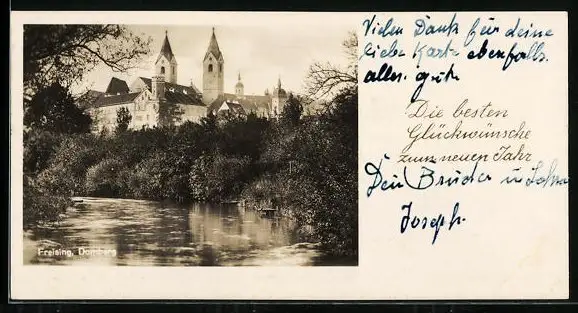 Vielen Dank für deine
liebe Karte ebenfalls
alles gute
Die besten
Glückwünsche
zum neuen Jahr
Dein Bruder u
Joseph
Freising, Domberg